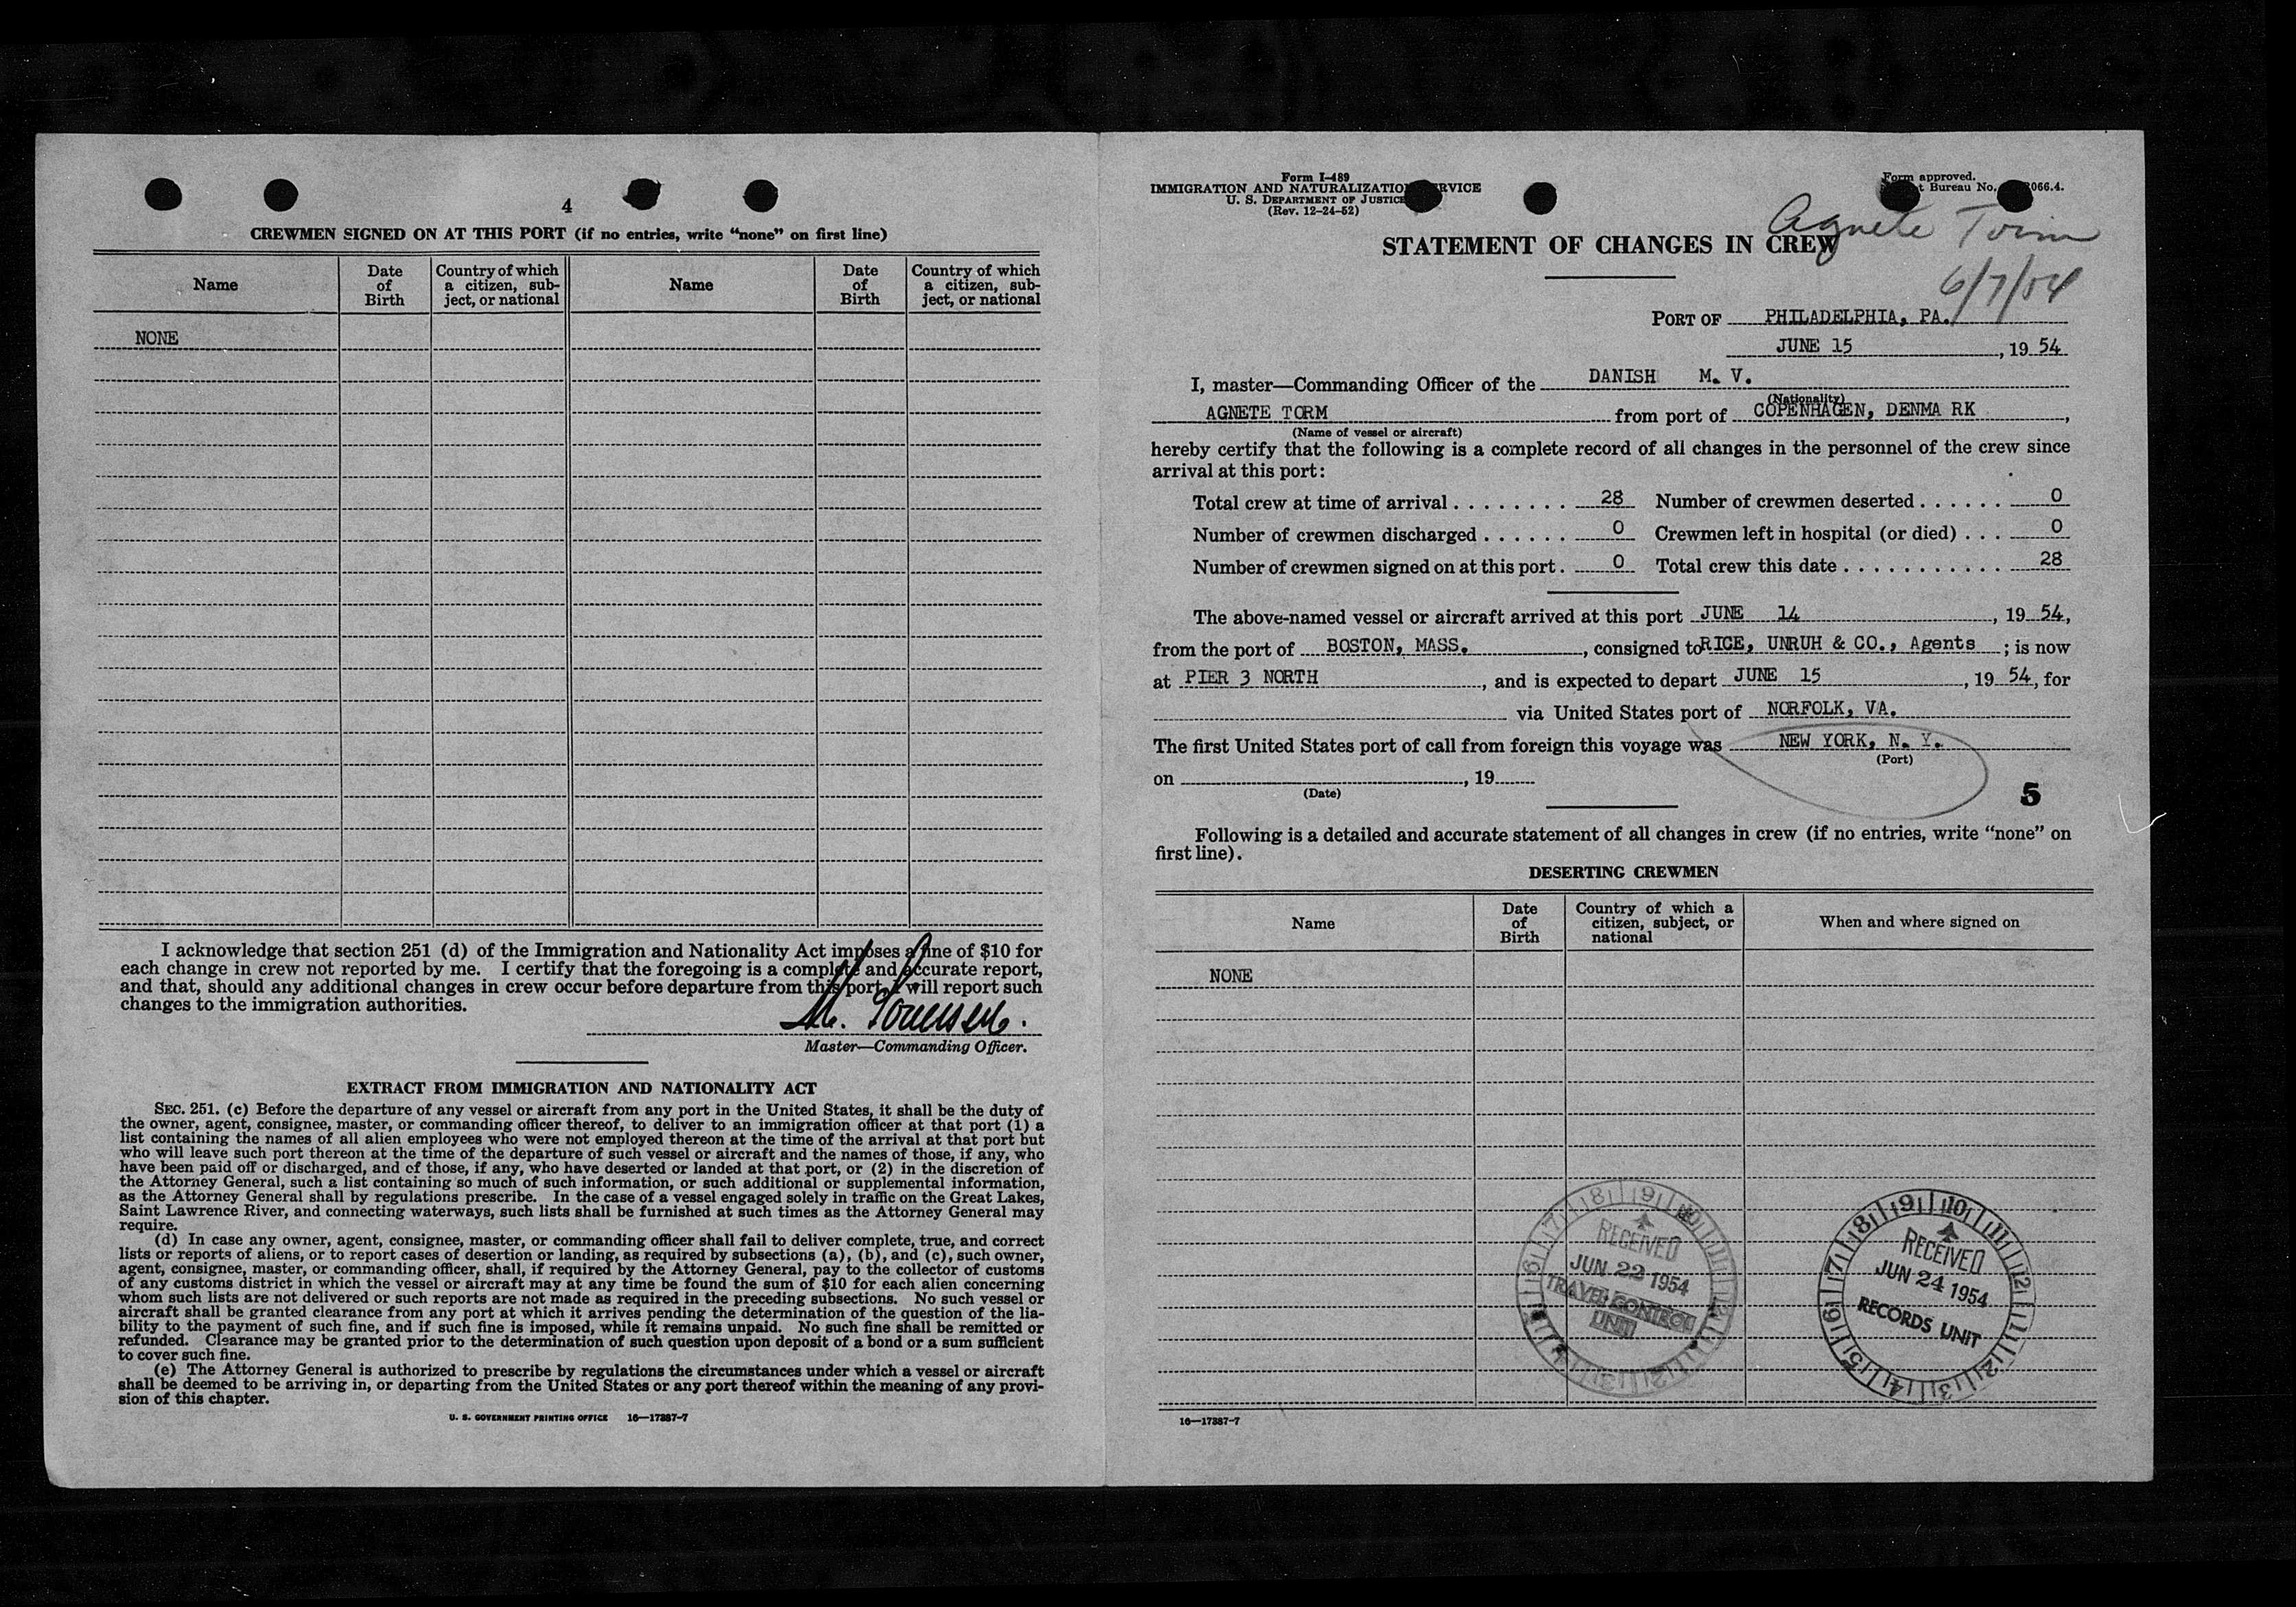 4
CREWMEN SIGNED ON AT THIS PORT (if no entries, write “none” on first line)
Name
Date of Birth
Country of which a citizen, subject, or national
Name
Date of Birth
Country of which a citizen, subject, or national
NONE
I acknowledge that section 251 (d) of the Immigration and Nationality Act imposes a fine of $10 for
each change in crew not reported by me. I certify that the foregoing is a complete and accurate report,
and that, should any additional changes in crew occur before departure from this port, I will report such
changes to the immigration authorities.
Master—Commanding Officer.
EXTRACT FROM IMMIGRATION AND NATIONALITY ACT
SEC. 251. (c) Before the departure of any vessel or aircraft from any port in the United States, it shall be the duty of
the owner, agent, consignee, master, or commanding officer thereof, to deliver to an immigration officer at that port (1) a
list containing the names of all alien employees who were not employed thereon at the time of the arrival at that port but
who will leave such port thereon at the time of the departure of such vessel or aircraft and the names of those, if any, who
have been paid off or discharged, and of those, if any, who have deserted or landed at that port, or (2) in the discretion of
the Attorney General, such a list containing so much of such information, or such additional or supplemental information,
as the Attorney General shall by regulations prescribe. In the case of a vessel engaged solely in traffic on the Great Lakes,
Saint Lawrence River, and connecting waterways, such lists shall be furnished at such times as the Attorney General may
require.
(d) In case any owner, agent, consignee, master, or commanding officer shall fail to deliver complete, true, and correct
lists or reports of aliens, or to report cases of desertion or landing, as required by subsections (a), (b), and (c), such owner,
agent, consignee, master, or commanding officer, shall, if required by the Attorney General, pay to the collector of customs
of any customs district in which the vessel or aircraft may at any time be found the sum of $10 for each alien concerning
whom such lists are not delivered or such reports are not made as required in the preceding subsections. No such vessel or
aircraft shall be granted clearance from any port at which it arrives pending the determination of the question of the lia-
bility to the payment of such fine, and if such fine is imposed, while it remains unpaid. No such fine shall be remitted or
refunded. Clearance may be granted prior to the determination of such question upon deposit of a bond or a sum sufficient
to cover such fine.
(e) The Attorney General is authorized to prescribe by regulations the circumstances under which a vessel or aircraft
shall be deemed to be arriving in, or departing from the United States or any port thereof within the meaning of any provi-
sion of this chapter.
U. S. GOVERNMENT PRINTING OFFICE 16—17387-7
Form I-489
IMMIGRATION AND NATURALIZATION SERVICE
U. S. DEPARTMENT OF JUSTICE
(Rev. 12-24-52)
Form approved.
Bureau No. 066.4.
Agnete Torm
6/7/54
STATEMENT OF CHANGES IN CREW
PORT OF PHILADELPHIA, PA.
JUNE 15, 19 54
I, master—Commanding Officer of the DANISH M. V.
(Nationality)
AGNETE TORM from port of COPENHAGEN, DENMA RK,
(Name of vessel or aircraft)
hereby certify that the following is a complete record of all changes in the personnel of the crew since
arrival at this port:
Total crew at time of arrival . . . . . . . . . 28 Number of crewmen deserted . . . . . . 0
Number of crewmen discharged . . . . . . 0 Crewmen left in hospital (or died) . . . 0
Number of crewmen signed on at this port . 0 Total crew this date . . . . . . . . . . . . 28
The above-named vessel or aircraft arrived at this port JUNE 14, 19 54,
from the port of BOSTON, MASS., consigned to RICE, UNRUH & CO., Agents ; is now
at PIER 3 NORTH, and is expected to depart JUNE 15, 19 54, for
via United States port of NORFOLK, VA.
The first United States port of call from foreign this voyage was NEW YORK, N. Y.
(Port)
on , 19
(Date)
5
Following is a detailed and accurate statement of all changes in crew (if no entries, write “none” on
first line).
DESERTING CREWMEN
Name
Date of Birth
Country of which a citizen, subject, or national
When and where signed on
NONE
RECEIVED
JUN 22 1954
TRAVEL CONTROL
UNIT
RECEIVED
JUN 24 1954
RECORDS UNIT
16—17387-7